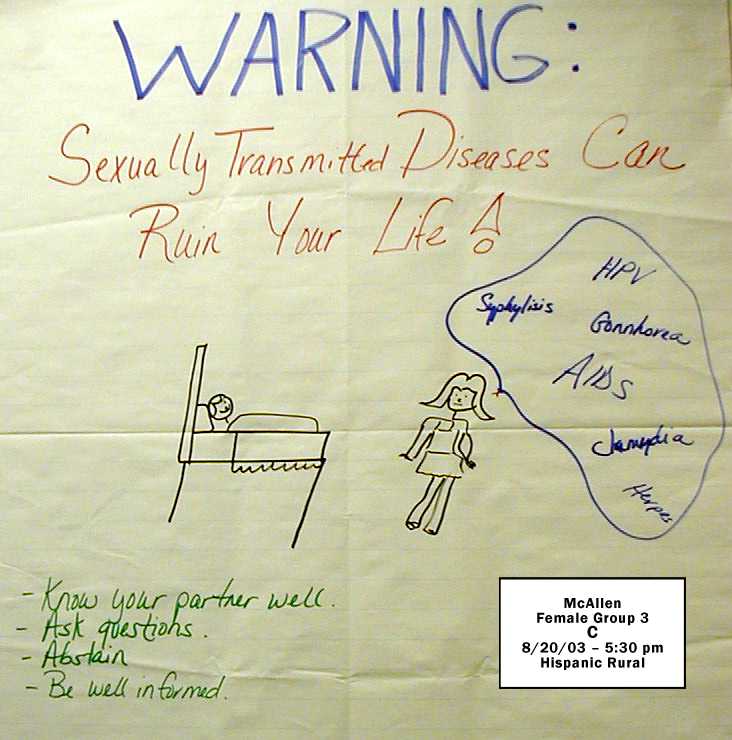 WARNING:
Sexually Transmitted Diseases Can
Ruin Your Life !
HPV
Syphylisis
Gonnhorea
AIDs
Clamydia
Herpes
- Know your partner well.
- Ask questions.
- Abstain
- Be well informed.
McAllen
Female Group 3
C
8/20/03 – 5:30 pm
Hispanic Rural